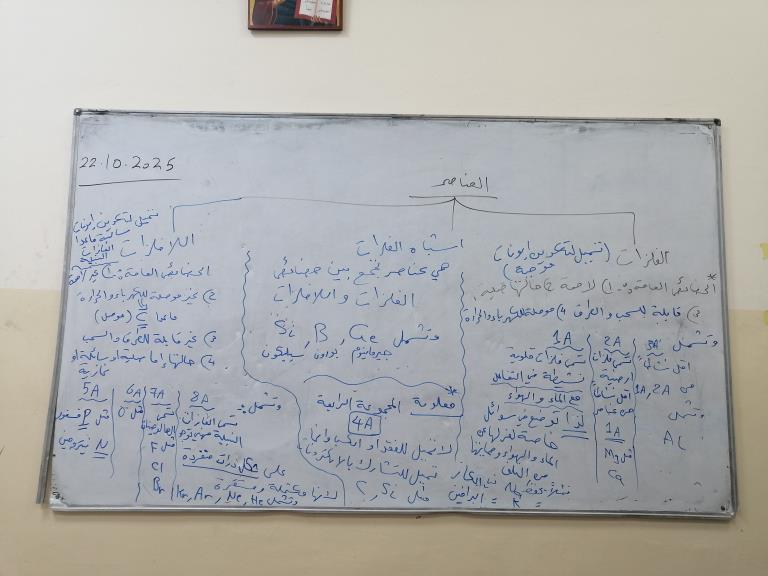 22.10.2025
العناصر
الفلزات (تميل لتكوين ايونات موجبة)
* الخصائص العامة:- 1) لامعة 2) حالتها صلبة
3) قابلة للسحب والطرق 4) موصلة للكهرباء والحرارة
وتشمل
1A
تسمى فلزات قلوية
نشيطة في التفاعل
مع الماء والهواء
لذا توضع في سوائل
خاصة لعزلها عن
الماء والهواء وحمايتها
من التلف
2A
تسمى فلزات
ارضية
اقل نشاطاً
من عناصر
1A
مثل Mg
Ca
3A
اقل نشاطاً
من 1A, 2A
وتشمل
Al
اشباه الفلزات
هي عناصر تجمع بين خصائص
الفلزات واللافلزات
وتشمل Si, B, Ge
جيرمانيوم بورون سيليكون
* معلومة المجموعة الرابعة
4A
لا تميل للفقد او اكتساب وانما
تميل للتشارك بالالكترونات
مثل C, Si
اللافلزات
تميل لتكوين ايونات
سالبة ماعدا
الغازات
النبيلة
الخصائص العامة:- 1) غير لامعة
2) غير موصلة للكهرباء والحرارة
ماعدا C (موصل)
3) غير قابلة للطرق والسحب
4) حالتها إما صلبة او سائلة او
غازية
وتشمل:-
8A
تسمى الغازات
النبيلة
على شكل ذرات منفردة
لانها مكتملة ومستقرة
وتشمل Kr, Ar, Ne, He
7A
تسمى
الهالوجينات
مثل F
Cl
Br
6A
مثل O
5A
مثل P فسفور
N نيتروجين